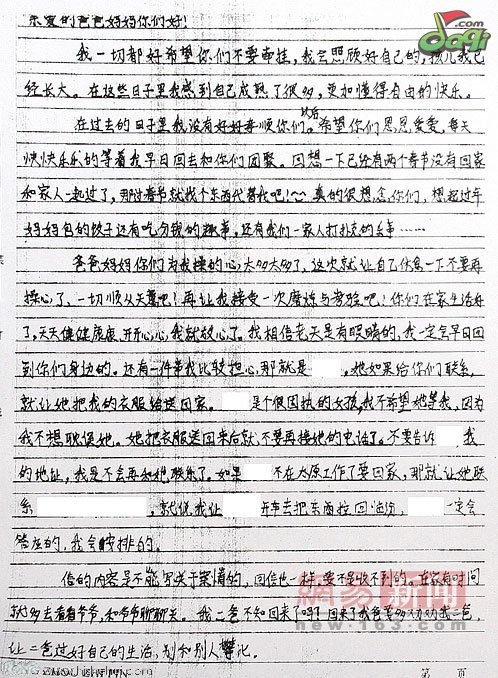 daqi
亲爱的爸爸妈妈你们好!
我一切都好希望你们不要牵挂,我会照顾好自己的,孩儿我已
经长大。在这些日子里我感到自己成熟了很多,更加懂得自由的快乐。
在过去的日子里我没有好好孝顺你们。以后希望你们恩恩爱爱,每天
快快乐乐的等着我早日回去和你们团聚。回想一下已经有两个春节没有回家
和家人一起过了,那过春节就找个东西代替我吧!~~真的很想念你们,想起过年
妈妈包的饺子还有吃分钱的趣事,还有我们一家人打扑克的乐事……
爸爸妈妈你们为我操的心太多太多了,这次就让自己休息一下不要再
操心了,一切顺从天意吧!再让我接受一次磨炼与考验吧!你们在家生活好
了,天天健健康康、开开心心,我就放心了。我相信老天是有眼睛的,我一定会早日回
到你们身边的。还有一件事我比较担心,那就是 ,她如果给你们联系,
就让她把我的衣服给送回家。 是个很固执的女孩,我不希望她等我,因为
我不想耽误她。她把衣服送回来后就不要再接她的电话了。不要告诉 我
的地址,我是不会再和她联系了。如果 不在太原工作了要回家,那就让她联
系 ,就说我让 开车去把东西拉回 , 一定会
答应的,我会安排的。
信的内容是不能写关于案情的,回信也一样,要不是收不到的。在家有时间
就多去看看爷爷,和爷爷聊聊天。我二爸不知回来了吗?回来了我爸要多劝劝我二爸,
让二爸过好自己的生活,别和别人攀比。
網易 新闻
news.163.com
第 页